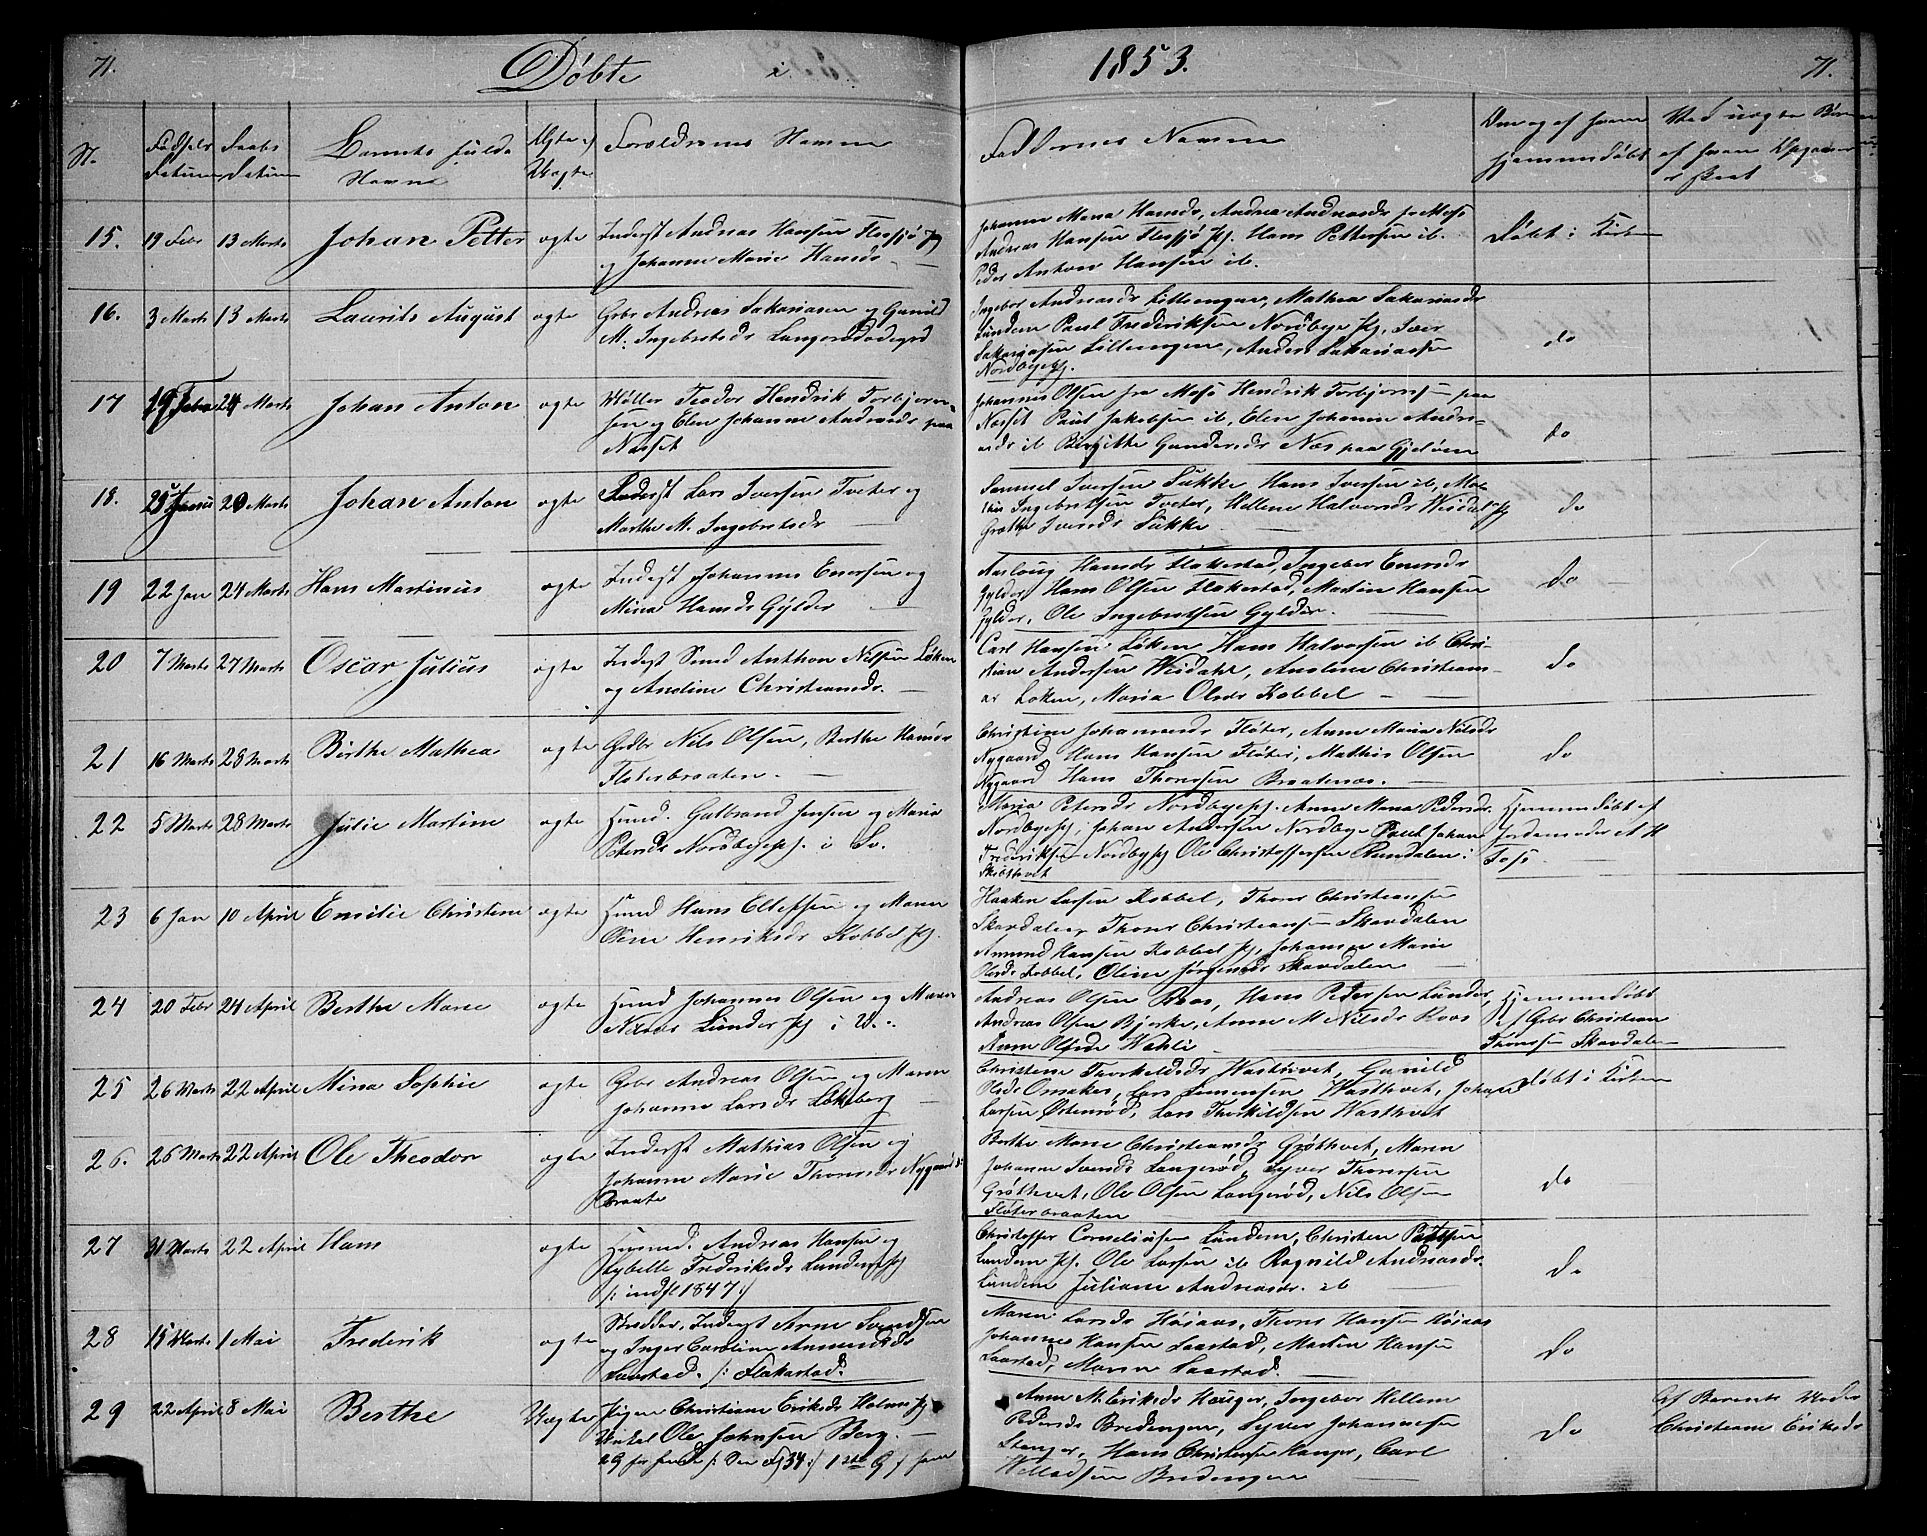 71.
Døbte i 1853.
71.
N.
Fødsels Datum
Daabs Datum
Barnets fulde Navne
Ægte / Uægte
Forældrenes Navne
Faddernes Navne
Om og af hvem hjemmedøbt
Ved uægte Børn af hvem Opgaven er skeet
15. 19 Febr 13 Marts Johan Petter ægte Inderst Andreas Hansen Flesjø
og Johanne Marie Hansdr
Johanne Maria Hansdr, Andrea Andreasdr fr Moss
Andreas Hansen Flesjø Hans Pettersen ib.
Peder Anton Hansen ib.
Døbt i Kirken
16. 3 Marts 13 Marts Laurits August ægte Gbr Andreas Sakariasen og Gunild
M. Ingebretsdr
Ingebor Andreasdr Lilleengen, Mathea Sakariasdr
Lunden Paul Frederiksen Nordbye
Sakariasen Lilleengen, Anders Sakariassen
do
17 19 Febr 24 Marts Johan Anton ægte Møller Teodor Hendrik Torbjørn-
sen og Elen Johanne Andreasdr paa
Næsset
Johannes Olsen fra Moss Hendrik Torbjørnsen paa
Næsset Paul Jakobsen ib, Elen Johanne Andre-
asdr ib Birgitte Gundersdr Næs paa Gjeløen
do
18. 20 Marts Johan Anton ægte Inderst Lars Iversen Tveter og
Marthe M. Ingebretsdr
Samuel Iversen Sukke Hans Iversen ib, Ma-
this Ingebretsen Tveter, Hellene Halvorsdr
Grethe Iversdr Sukke
do
19 22 Jan 24 Marts Hans Martinus ægte Inderst Johannes Enersen og
Mina Hansdr Gylder
Aasloug Hansdr Flakestad, Ingebor Enersdr
Gylder Hans Olsen Flakestad, Martin Hansen
Gylder, Ole Ingebretsen Gylder.
do
20 7 Marts 27 Marts Oscar Julius ægte Inderst Smed Anthon Nilsen Løken
og Andine Christiansdr.
Carl Hansen Løken Hans Halvorsen ib Chri-
stian Andersen
Løken, Maria Olsdr Kobbel
do
21 16 Marts 28 Marts Birthe Mathea ægte Gbr Nils Olsen, Berthe Hansdr
Fløterbraaten.
Christine Johannesdr Fløter, Anne Maria Nilsdr
Nygaard Hans Hansen Fløter, Mathis Olsen
Nygaard Hans Thoresen Braatenæs.
do
22 5 Marts 28 Marts Julie Martine ægte Husmd. Gulbrand Jensen og Maria
Petersdr Nordbye i So.
Maria Petersdr Nordbye Anne Maria Pedersdr
Nordbye, Johan Andersen Nordbye Paul Johan
Frederiksen Nordbye Ole Christoffersen Rundalen i
Skibthvet
Hjemmedøbt af
Jordemoder A M
Foss
23 6 Jan 10 April Emilie Christine ægte Husmd Hans Ellefsen og Maren
Oline Henriksdr Kobbel
Haaken Larsen Kobbel, Thore Christiansen
Skavdalen Thorer Christiansen Skavdalen
Amund Hansen Kobbel, Johanne Marie
Olesdr Kobbel, Oline Jørgensdr Skavdalen
24 20 Febr 24 April Berthe Marie ægte Husmd Johannes Olsen og Maren
Lunder i V.
Andreas Olsen Roos, Hans Pedersen Lunder,
Andreas Olsen Bjerke, Anne M Nilsdr Roos
Anne Olsdr
Hjemmedøbt
af Gbr Christian
Thoresen Skavdalen
25 26 Marts 22 April Mina Sophie ægte Gbr Andreas Olsen og Maren
Johanne Larsdr Løkberg
Christine Thorkildsdr Wasthvet, Gunild
Wasthvet, Johan
Larsen Østenrød, Lars Thorkildsen Wasthvet
Døbt i Kirken
26. 26 Marts 22 April Ole Theodor ægte Inderst Mathias Olsen og
Johanne Marie Thoresdr Nygaards
Braate
Berthe Marie Christiansdr Grøthvet, Maren
Johanne Svendsdr Langerød, Syver Thoresen
Grøthvet, Ole Olsen Langerød, Nils Olsen
Fløterbraaten
do
27 31 Marts 22 April Hans ægte Husmd. Andreas Hansen og
Sybelle Frederiksdr Lunden
/: indft 1847 :/
Christoffer Corneliusen Lunden, Christen Paulsen
Lunden Ole Larsen ib Ragnild Andreasdr
Lunden Juliane Andreasdr. ib
do
28 15 Marts 1 Mai Frederik ægte Skredder, Inderst Arne Svendsen
og Inger Caroline Amundsdr
Saastad. /: Flakastad
Maren Larsdr Høiaas, Thore Hansen Høiaas
Johannes Hansen Saastad, Martin Hansen
Saastad, Maren Saastad.
do
29 22 April 8 Mai Berthe Uægte Pigen Christiane Eriksdr Holme
Ole Johnsen Berg.
Anne M. Eriksdr Hauger, Ingebor Hellene
Pedersdr Bredengen, Syver Johannesen
Stenger, Hans Christensen Hauger, Carl
Bredengen
do
Af Barnets Moder
Christiane Eriksdr